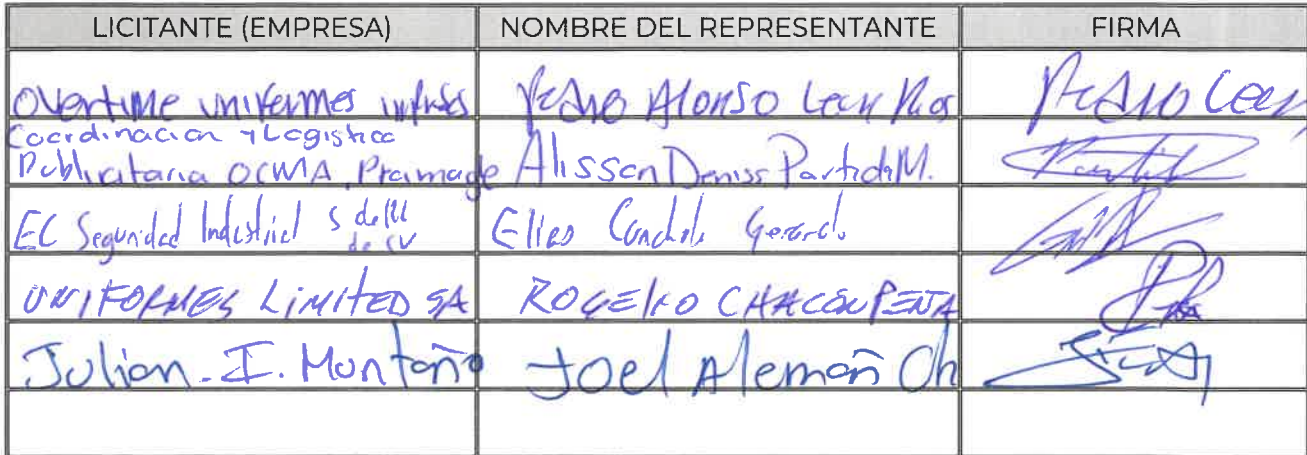 LICITANTE (EMPRESA) NOMBRE DEL REPRESENTANTE FIRMA
Overtime uniformes Pedro Alonso Leon Rios Pedro Leon
Coordinacion y Logistica
Publicitaria OCMA, Pramage Alisson Deniss Partida M.
EC Seguridad Industrial S de Rl Elias Gerardo
de CV
UNIFORMES LiMiTED SA ROGELIO CHACON PEÑA
Julian. I. Montaño Joel Alemañ Ch